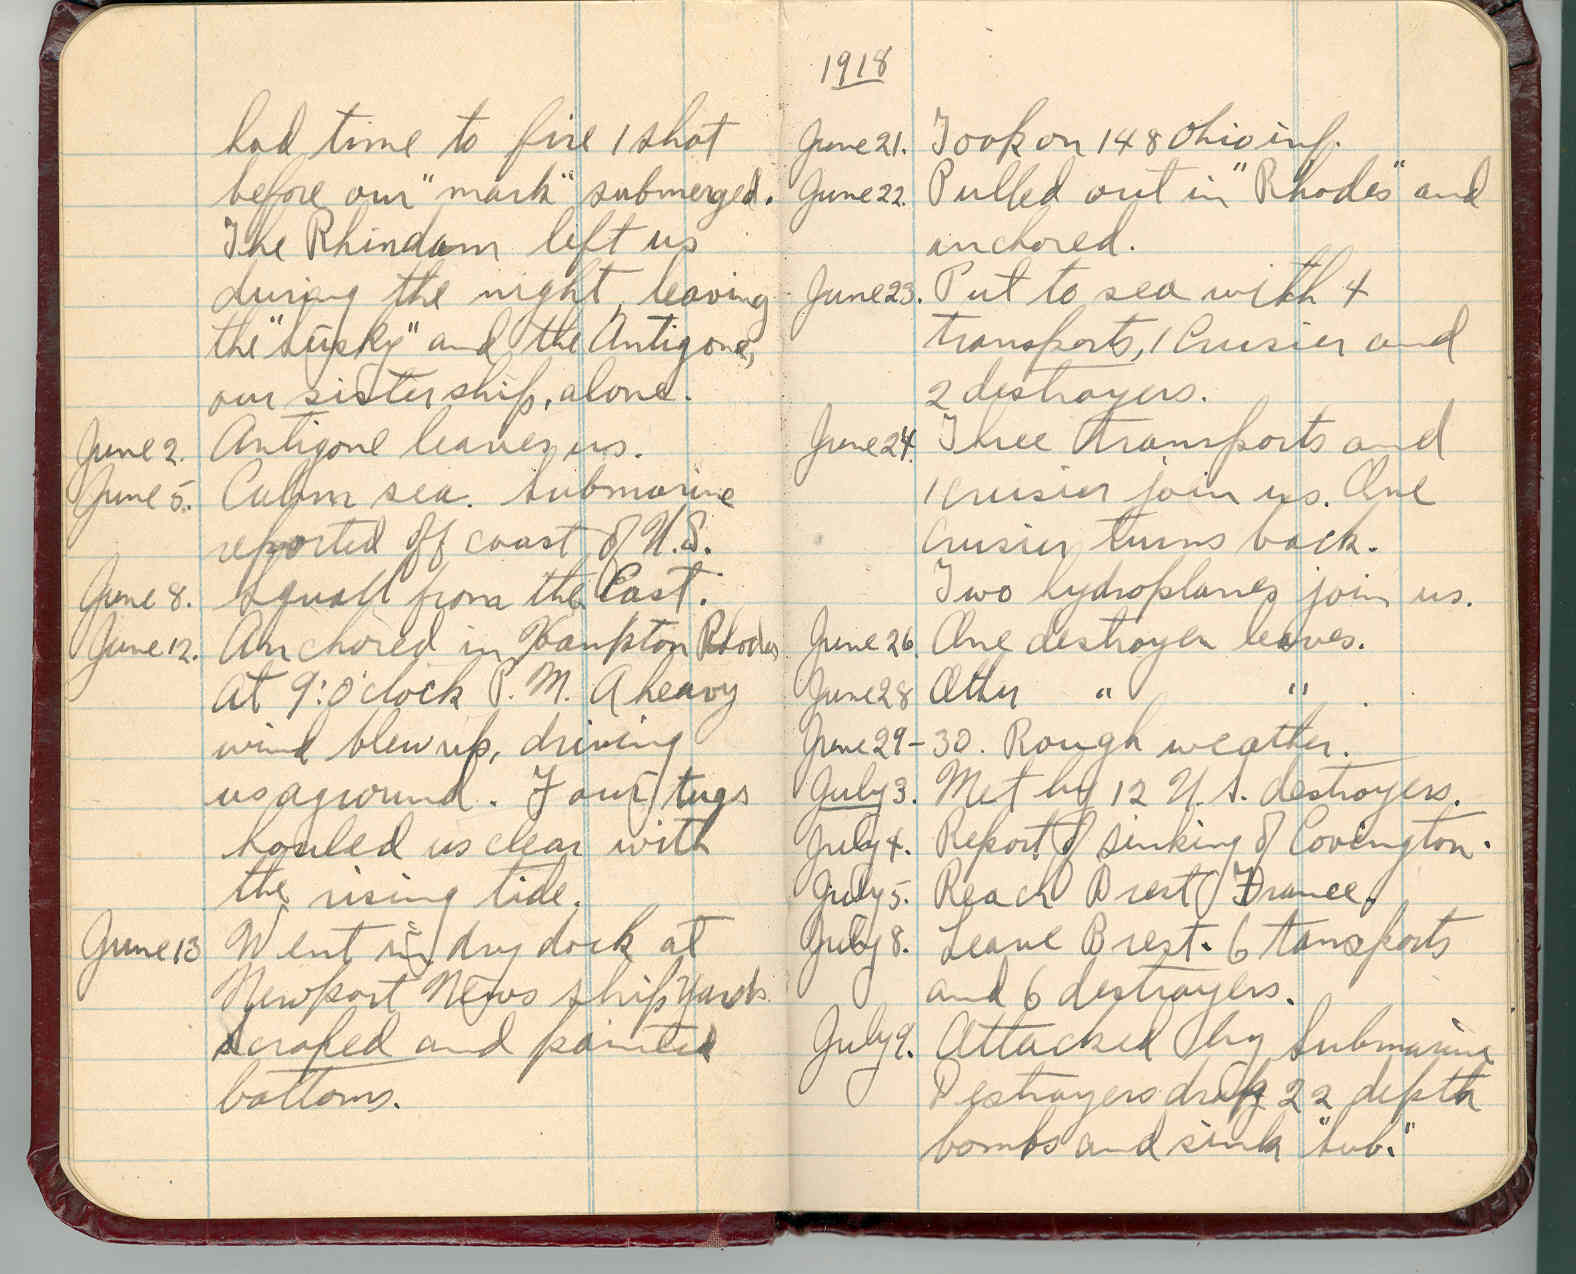 had time to fire 1 shot
before our "mark" submerged.
The Rhindam left us
during the night, leaving
the "Susky" and the Antigone,
our sister ship, alone.
June 2. Antigone leaves us.
June 5. Calm sea. Submarine
reported off coast of U.S.
June 8. Squall from the East.
June 12. Anchored in Hampton Rhodes
at 9:o'clock P.M. A heavy
wind blew up, driving
us aground. Four tugs
hauled us clear with
the rising tide.
June 13 Went in dry dock at
Newport News ship yards
scraped and painted
bottoms.
1918
June 21. Took on 148 Ohio inf.
June 22. Pulled out in "Rhodes" and
anchored.
June 23. Put to sea with 4
transports, 1 Cruisier and
2 destroyers.
June 24. Three transports and
1 cruisier join us. One
Cruisier turns back.
Two hydroplanes join us.
June 26. One destroyer leaves.
June 28 Other " "
June 29-30. Rough weather.
July 3. Met by 12 U.S. destroyers.
July 4. Report of sinking of Covington.
July 5. Reach Brest France.
July 8. Leave Brest. 6 tansports
and 6 destroyers.
July 9. Attacked by Submarine
Destroyers drop 22 depth
bombs and sink "sub."